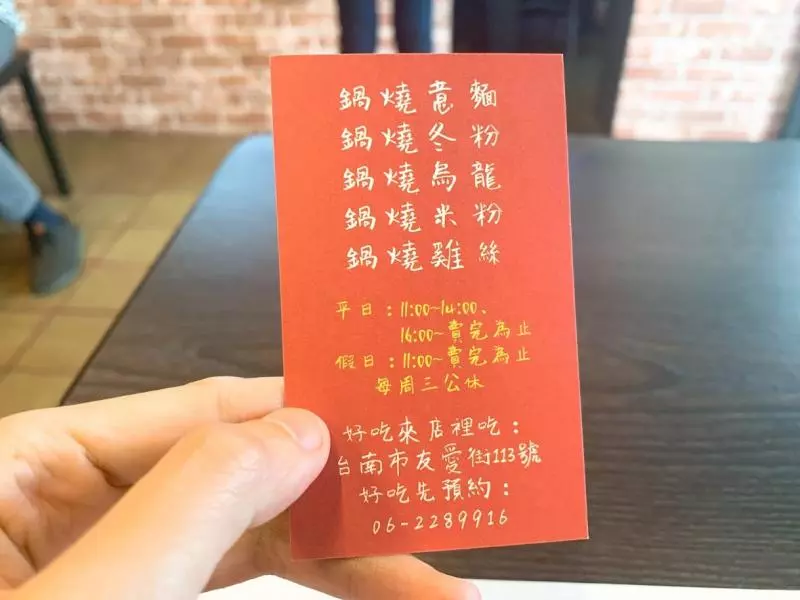 鍋燒意麵
鍋燒冬粉
鍋燒烏龍
鍋燒米粉
鍋燒雞絲
平日：11:00~14:00、
16:00~賣完為止
假日：11:00~賣完為止
每周三公休
好吃來店裡吃：
台南市友愛街113號
好吃先預約：
06-2289916